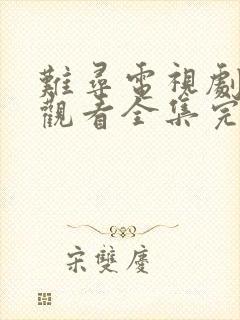 難尋電視劇
觀看全集完
宋雙慶